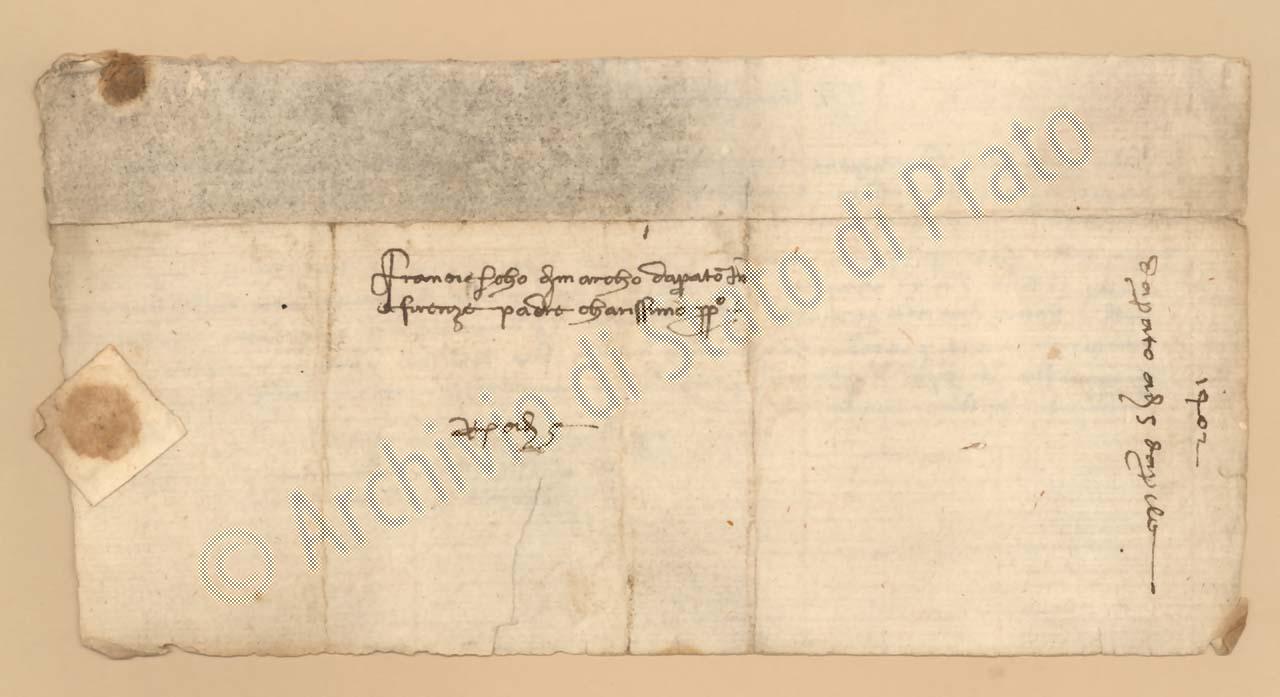 Franciescho di marcho da prato in
a firenze padre charissimo ppo
Da prato a dì 5 d'aprile
1402
© Archivio di Stato di Prato